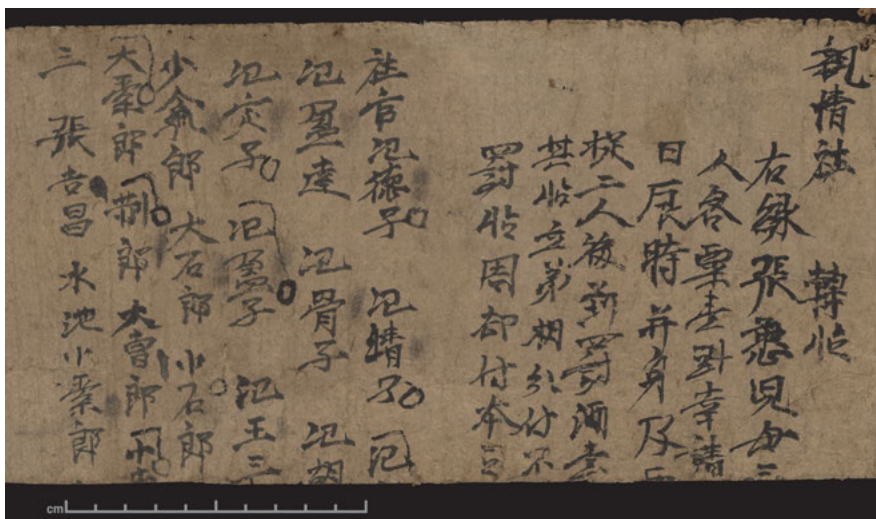 親情社 轉帖
右緣張憨兒母
人各粟壹斗幸請
日辰時并身及
捉二人後到罰酒壹
其帖立弟相分付不
罰帖周却付本
社官氾德子 氾晴子 氾
氾盈達 氾骨子 氾胡
氾定子 氾盈子 氾王三
少氣郎 大石郎 小石郎
大索郎 荊郎 大曹郎 小
三 張吉昌 水池小索郎
cm